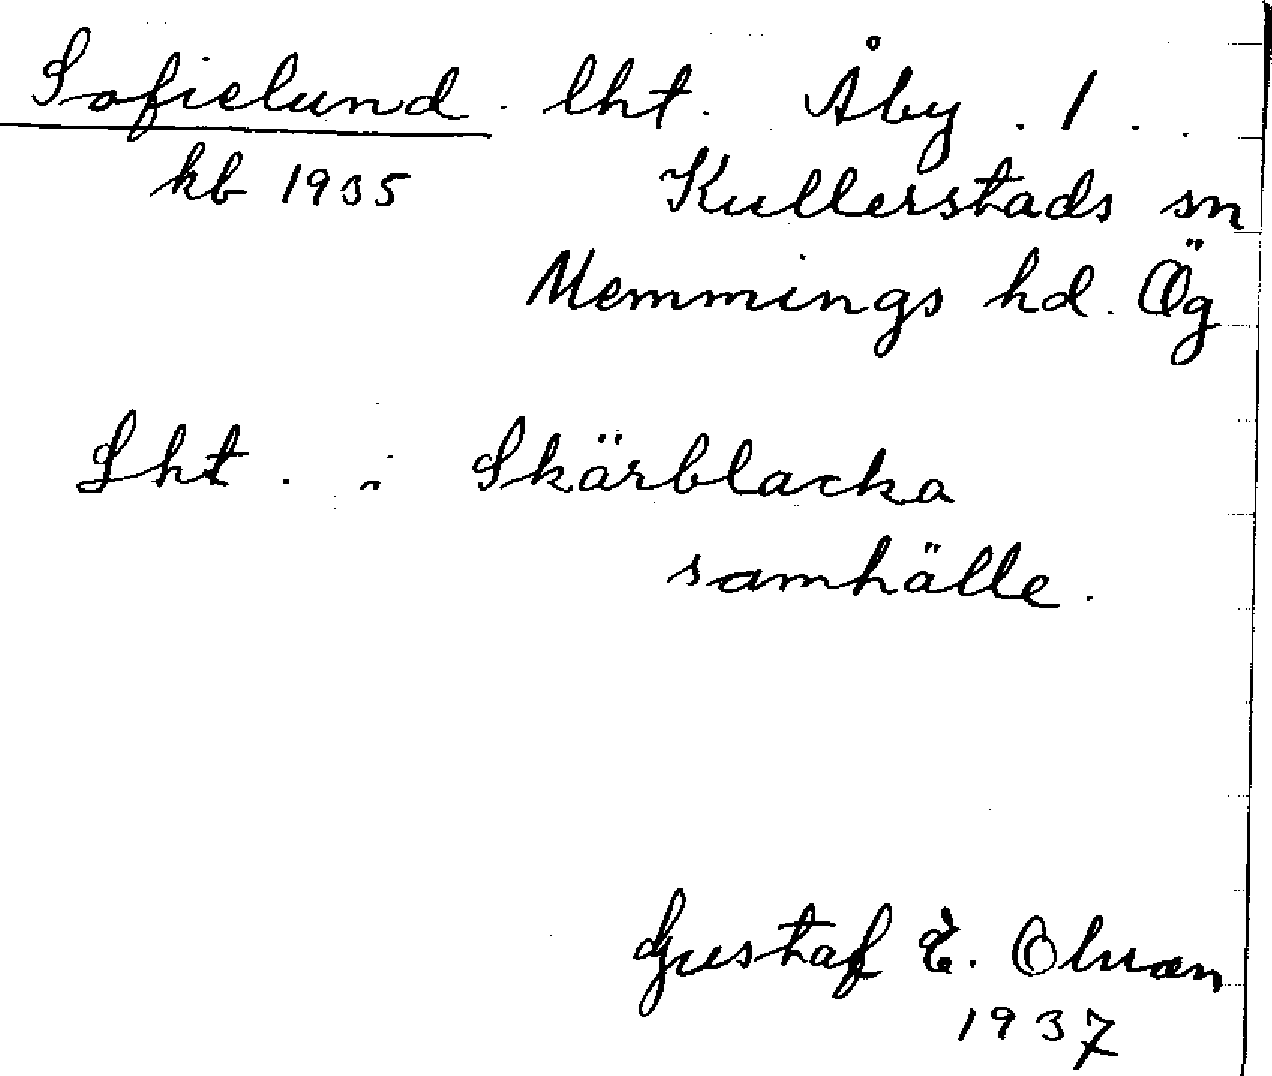 Sofielund lht. Åby. 1
kb 1935 Kullerstads sn
Memmings hd. Ög
Lht. i Skärblacka
samhälle.
Gustaf E. Olson
1937